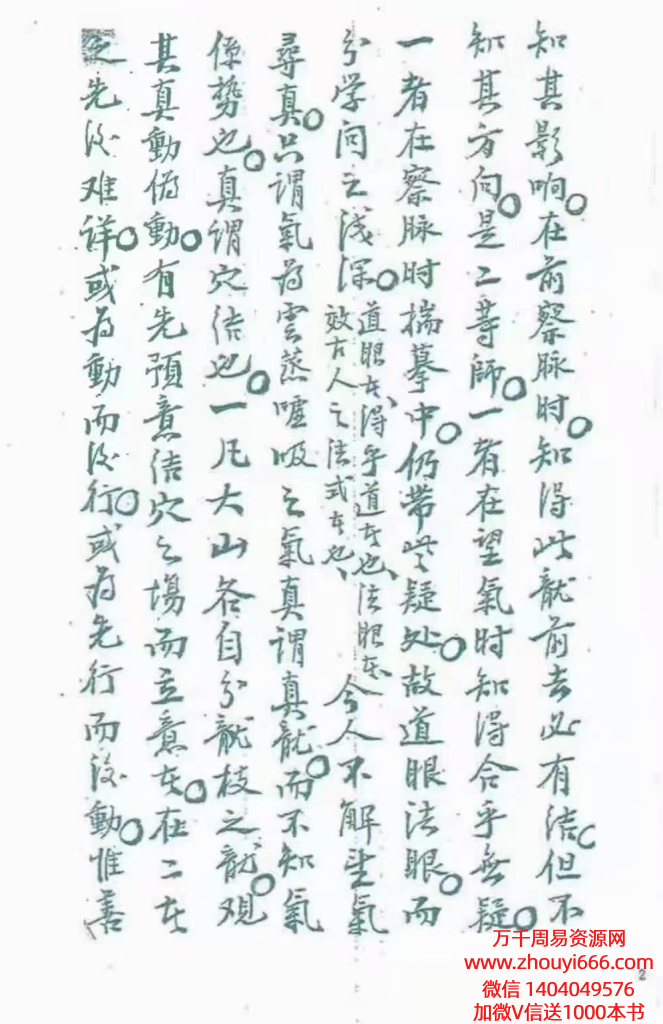 知其影响。在前察脉时。知得此龍前去必有结。但不
知其方向。是二等師。一者在望氣时知得合乎無疑。
一者在察脉时揣摹中。仍带此疑处。故道眼法眼。而
分学问之浅深。
道眼者、得乎道者也、法眼者、
效古人之法式者也、
今人不解望氣
尋真。只谓氣为雲蒸嘘吸之氣真谓真龍。而不知氣
僚勢也。真谓穴结也。一凡大山各自分龍枝之龍。观
其真動偽動。有先預意结穴之場而立意者。在二者
之先後难详。或为動而後行。或为先行而後動。惟善
2
万千周易资源网
www.zhouyi666.com
微信 1404049576
加微V信送1000本书